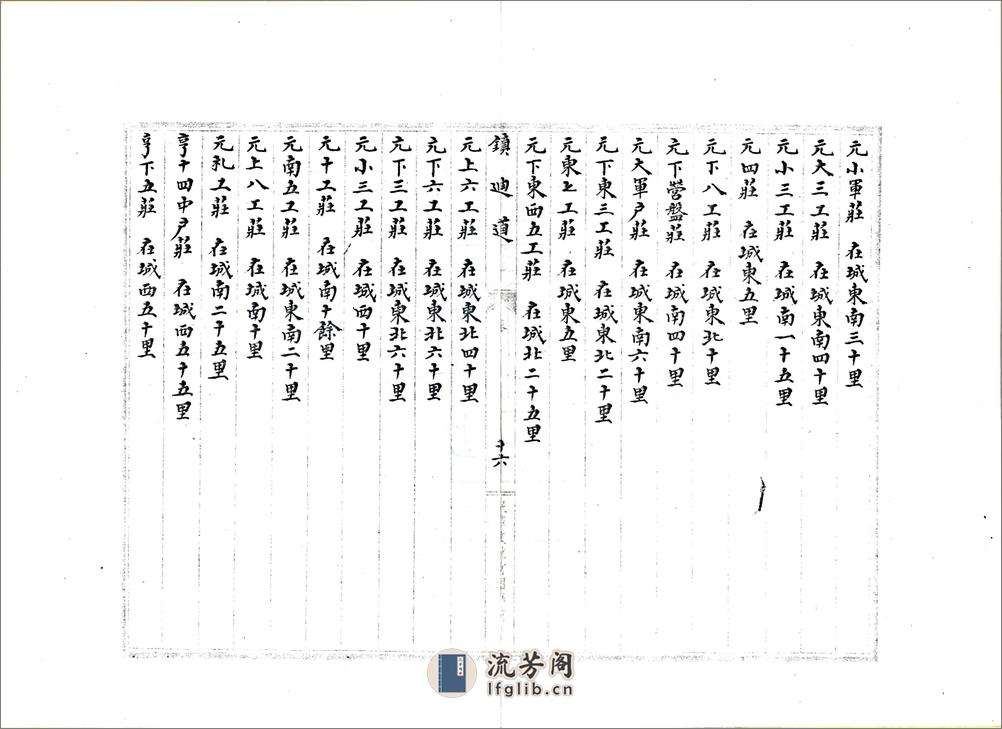 元小軍莊　在城東南三十里
元大三工莊　在城東南四十里
元小三工莊　在城南一十五里
元四莊　在城東五里
元下八工莊　在城東北十里
元下營盤莊　在城南四十里
元大軍户莊　在城東南六十里
元下東三工莊　在城東北二十里
元東七工莊　在城東五里
元下東西五工莊　在城北二十五里
鎮迪道
十六
元上六工莊　在城東北四十里
元下六工莊　在城東北六十里
元下三工莊　在城東北六十里
元小三工莊　在城西十里
元十工莊　在城南十餘里
元南五工莊　在城東南二十里
元上八工莊　在城南十里
元九工莊　在城南二十五里
亨十四中户莊　在城西五十五里
亨下五莊　在城西五十里
流芳阁
lfglib.cn